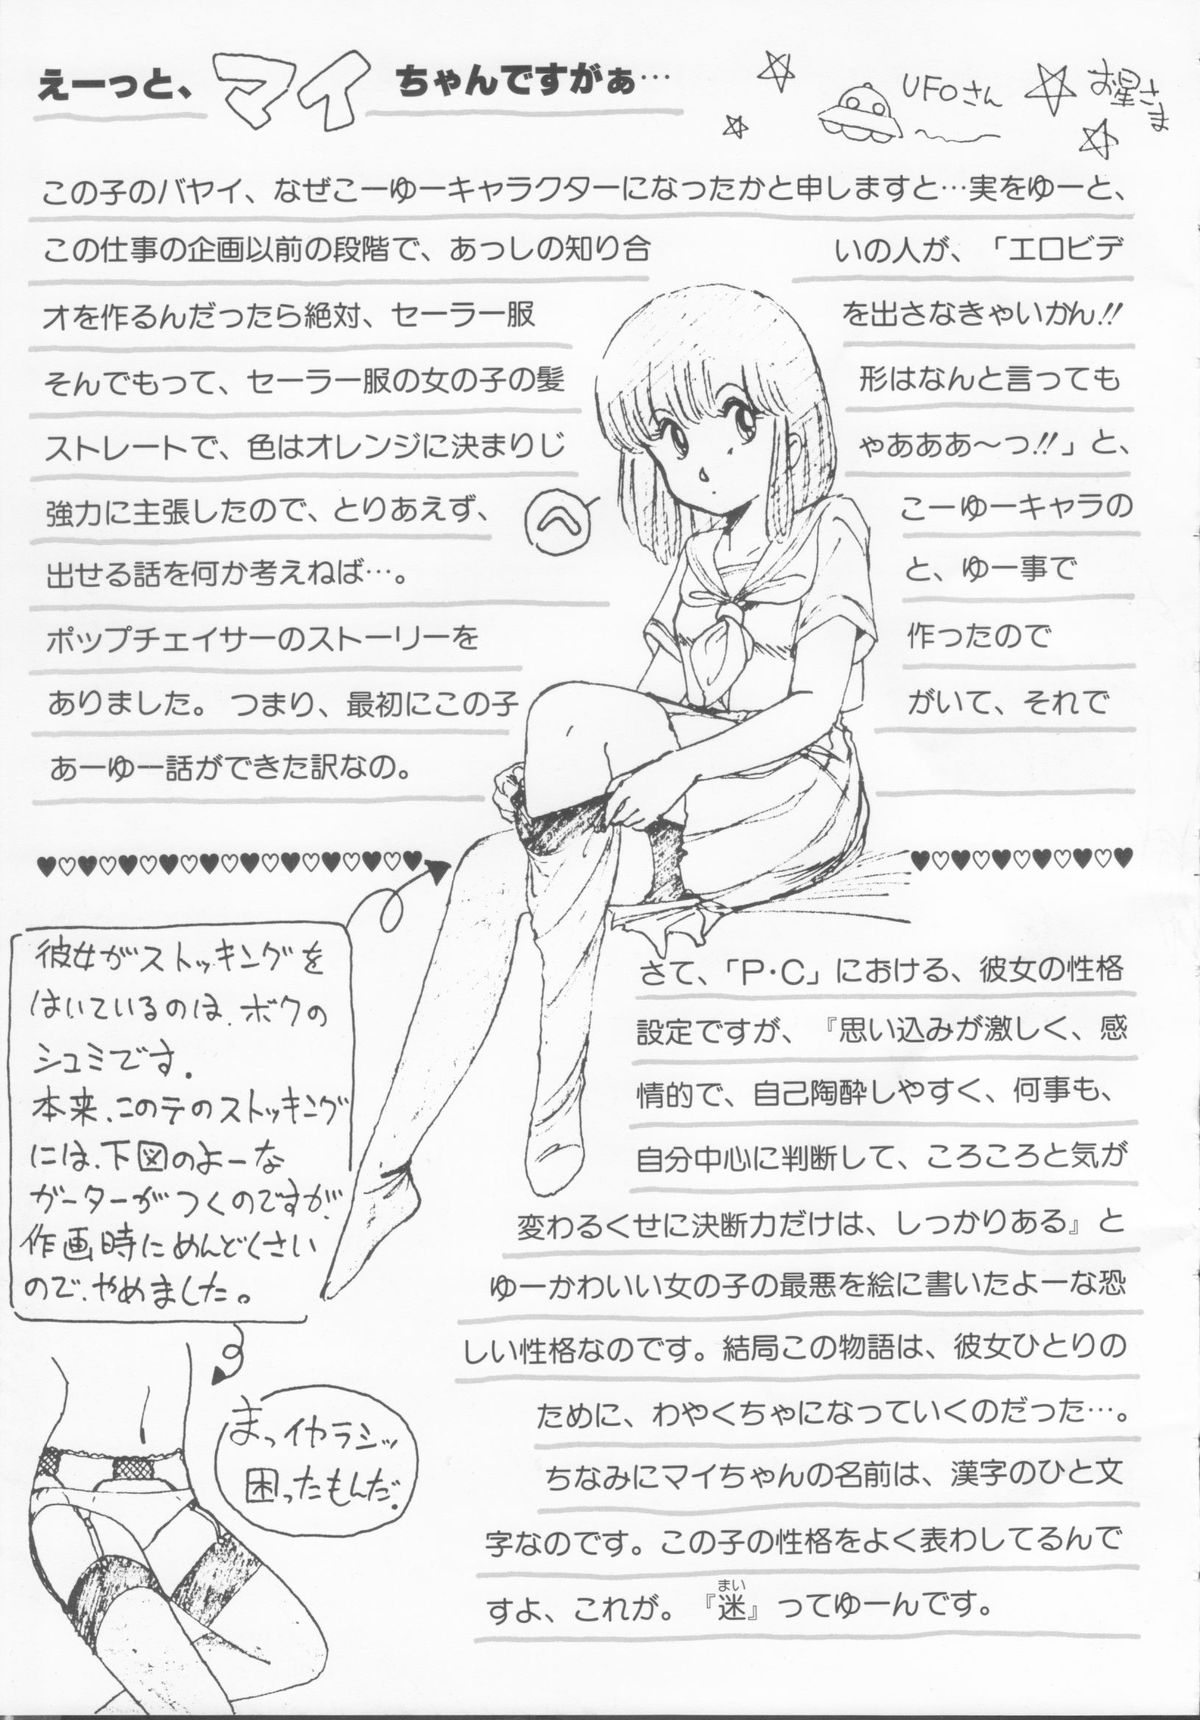 えーっと、マイちゃんですがぁ…
UFOさん
お星さま
この子のバヤイ、なぜこーゆーキャラクターになったかと申しますと…実をゆーと、
この仕事の企画以前の段階で、あっしの知り合いの人が、「エロビデ
オを作るんだったら絶対、セーラー服を出さなきゃいかん!!
そんでもって、セーラー服の女の子の髪形はなんと言っても
ストレートで、色はオレンジに決まりじゃあああ〜っ!!」と、
強力に主張したので、とりあえず、こーゆーキャラの
出せる話を何か考えねば…。と、ゆー事で
ポップチェイサーのストーリーを作ったので
ありました。つまり、最初にこの子がいて、それで
あーゆー話ができた訳なの。
へ
彼女がストッキングを
はいているのは、ボクの
シュミです。
本来、このテのストッキング
には、下図のよーな
ガーターがつくのですが、
作画時にめんどくさい
ので、やめました。
まっイヤラシッ
困ったもんだ。
さて、「P・C」における、彼女の性格
設定ですが、『思い込みが激しく、感
情的で、自己陶酔しやすく、何事も、
自分中心に判断して、ころころと気が
変わるくせに決断力だけは、しっかりある』と
ゆーかわいい女の子の最悪を絵に書いたよーな恐
しい性格なのです。結局この物語は、彼女ひとりの
ために、わやくちゃになっていくのだった…。
ちなみにマイちゃんの名前は、漢字のひと文
字なのです。この子の性格をよく表わしてるんで
すよ、これが。『迷』ってゆーんです。
まい